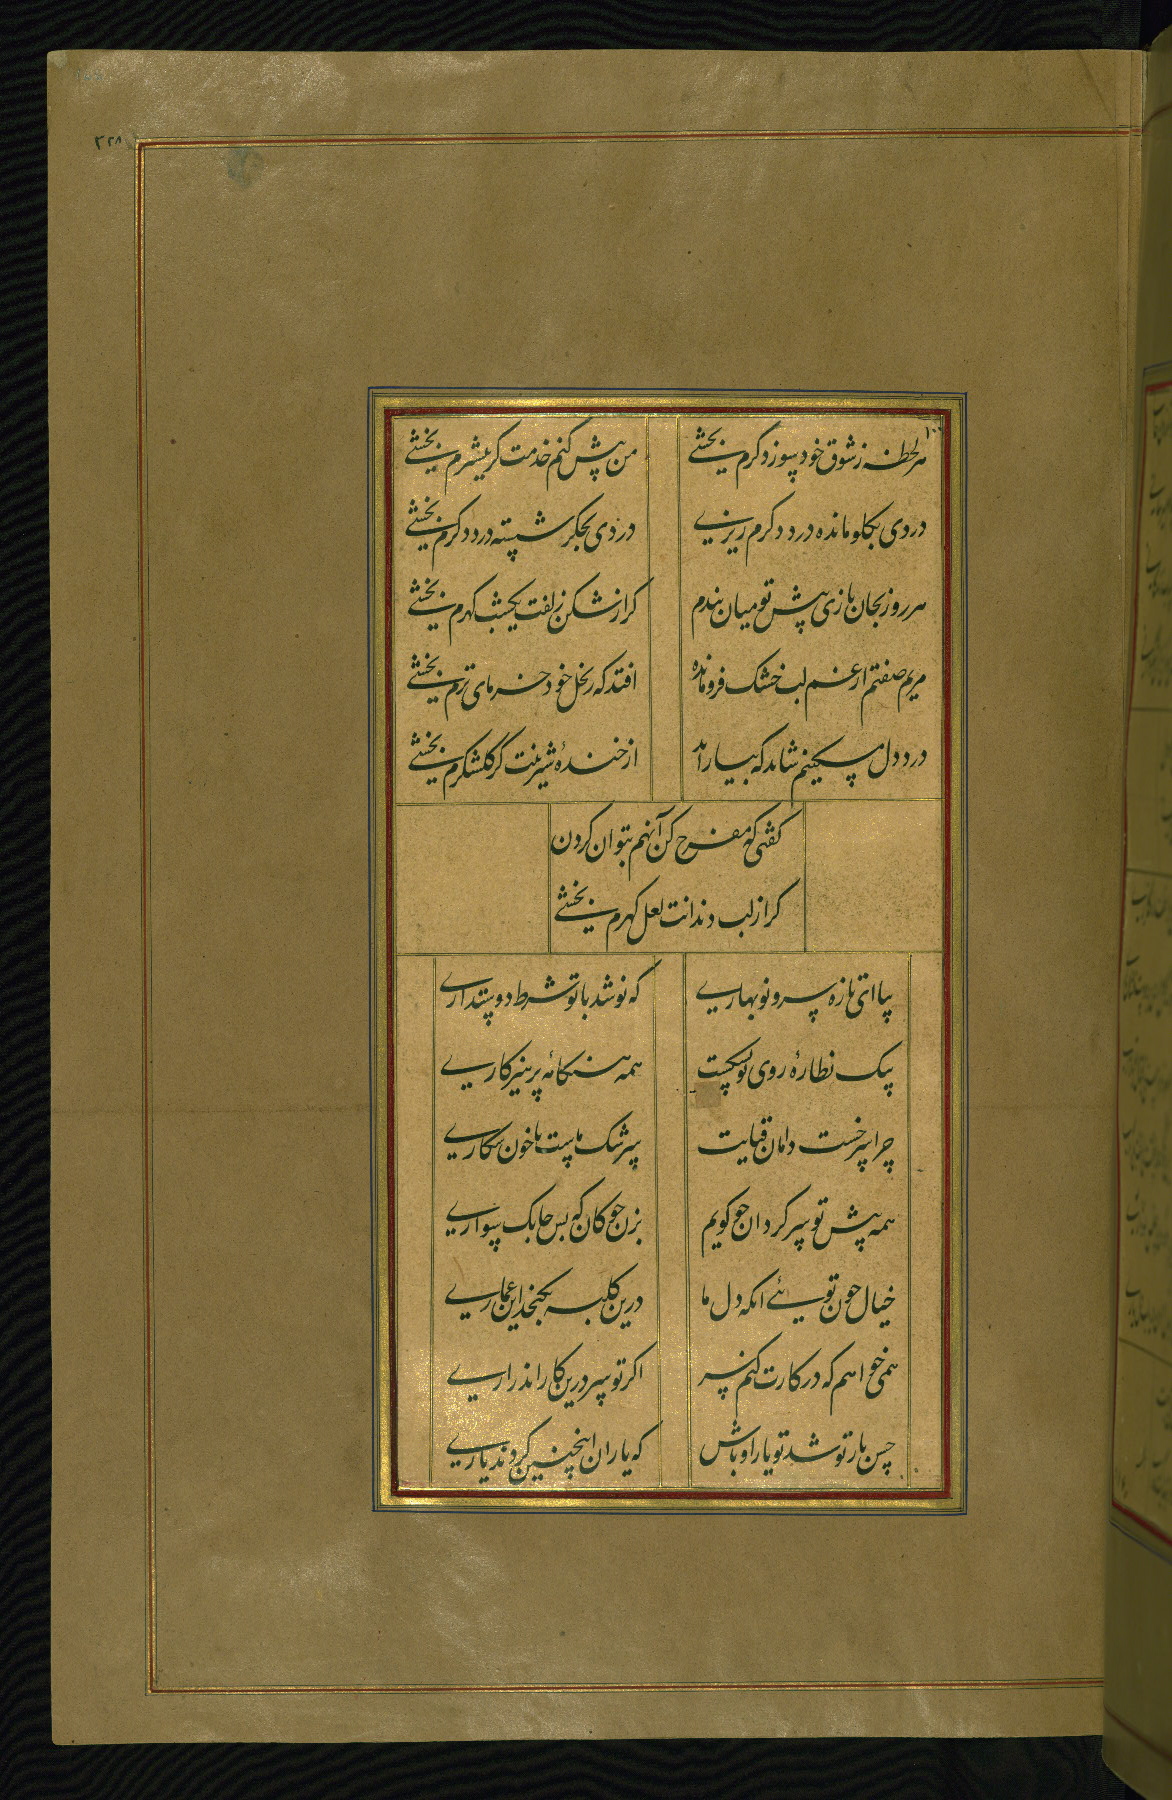 ۳۲۸
هر لحظه ز شوق خود سوز دگرم بخشی
من پیش کنم خدمت گر بیشترم بخشی
دردی بگلو مانده درد دگرم ریزی
دردی بجگر شسته درد دگرم بخشی
هر روز بجان بازی پیش تو میان بندم
گر از شکن زلفت یکشب کمرم بخشی
مریم صفتم از غم لب خشک فرومانده
افتد که ز نخل خود خرمای ترم بخشی
درد دل مسکینم شاید که بیارامد
از خندهٔ شیرینت گر گلشکرم بخشی
گفتی که مفرح کن آنهم بتوان کردن
گر از لب دندانت لعل گهرم بخشی
بیا ای تازه سرو نوبهاری
که نو شد با تو شرط دوستداری
بیک نظارهٔ روی تو بشکست
همه هنگامهٔ پرهیزکاری
چرا سرخست دامان قبایت
سرشک ماست یا خون شکاری
همه پیش تو سر گردان چو گویم
بزن چوگان که بس چابک سواری
خیال چون تویی آنگه دل ما
درین کلبه بگنجد این عماری
همی خواهم که در کارت کنم سر
اگر تو سر درین کار اندر آری
حسن یار تو شد تو یار او باش
که یاران اینچنین کردند یاری